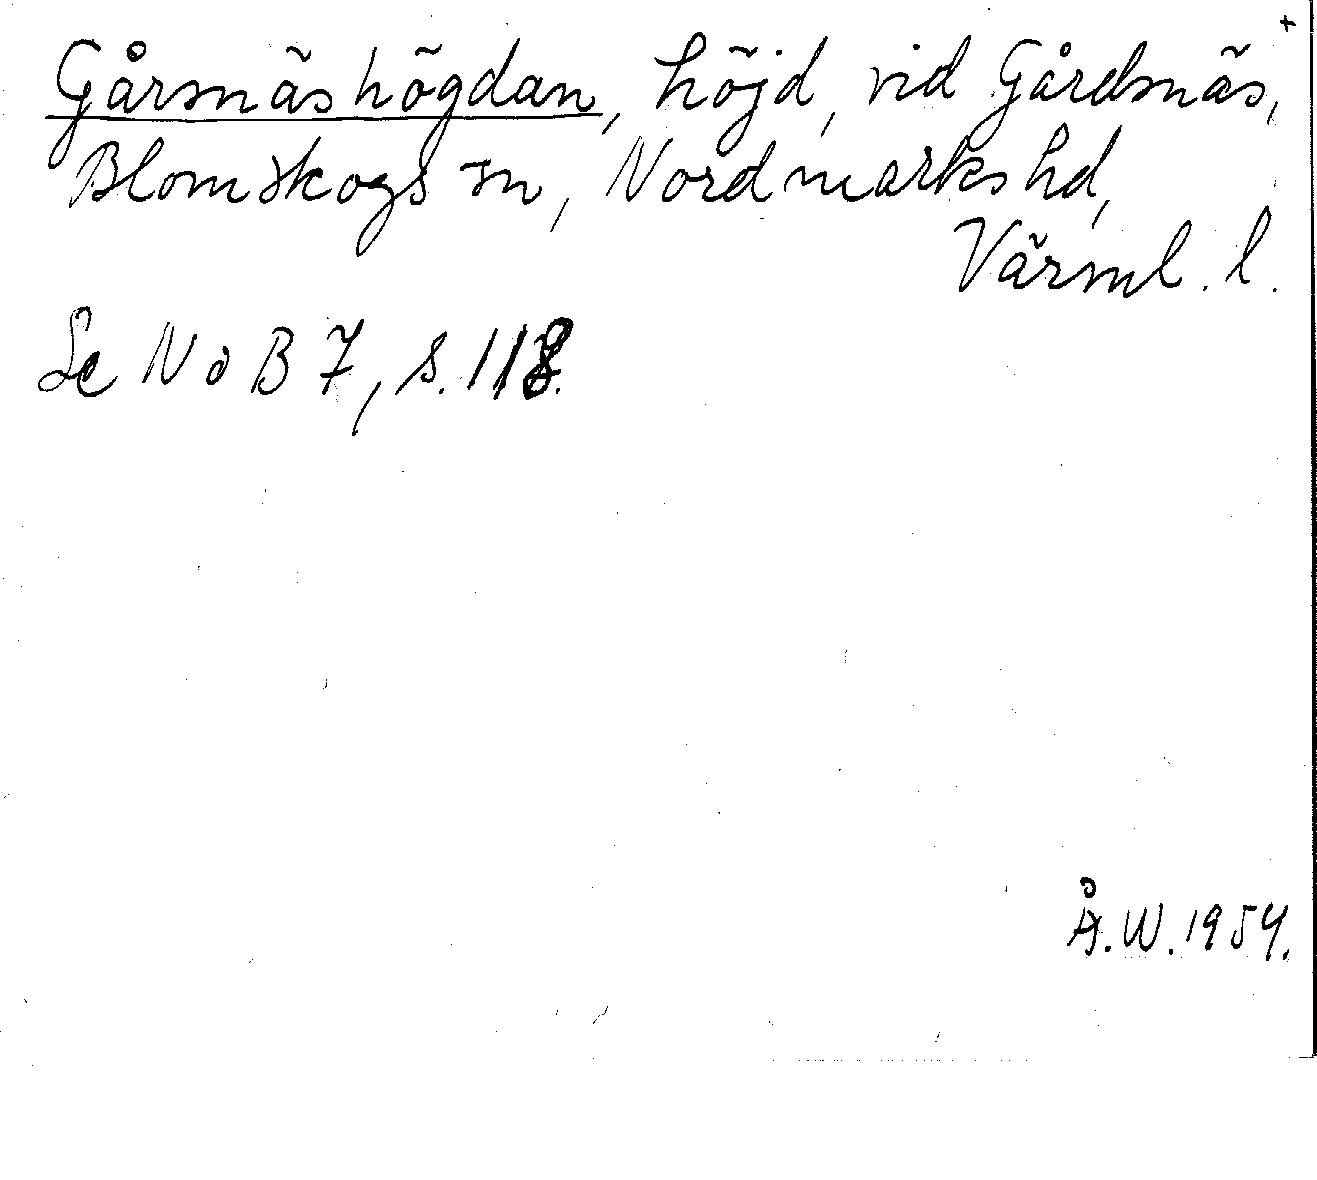 +
Gårsnäshögdan, höjd, vid Gårdsnäs,
Blomskogs sn, Nordmarks hd,
Värml. l.
Se NoB 7, s. 118.
Å.W. 1954.